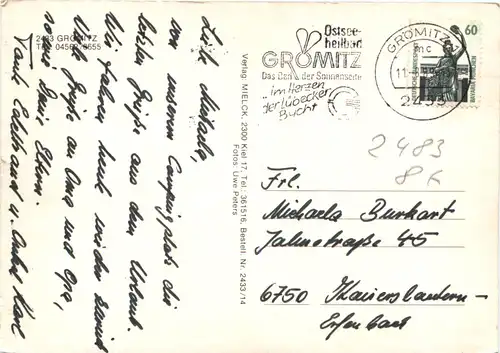 2433 GRÖMITZ
Liebe Michaela,
von unserm Campingplatz die
besten Grüße aus dem Urlaub.
Wir fahren heute wieder zurück.
Viele Grüße an Oma und Opa,
sowie Deine Eltern.
Tante Edeltraut u. Onkel Karl
Verlag: MIELCK, 2300 Kiel 17, Tel.: 361516, Bestell. Nr. 2433/14
Fotos: Uwe Peters
Ostsee-
heilbad
GRÖMITZ
Das Bad der Sonnenseite
"im Herzen
der Lübecker
Bucht"
GRÖMITZ 1
mc
2433
60
2483
86
Frl.
Michaela Burkart
Jahnstraße 45
6750 Kaiserslautern-
Erfenbach